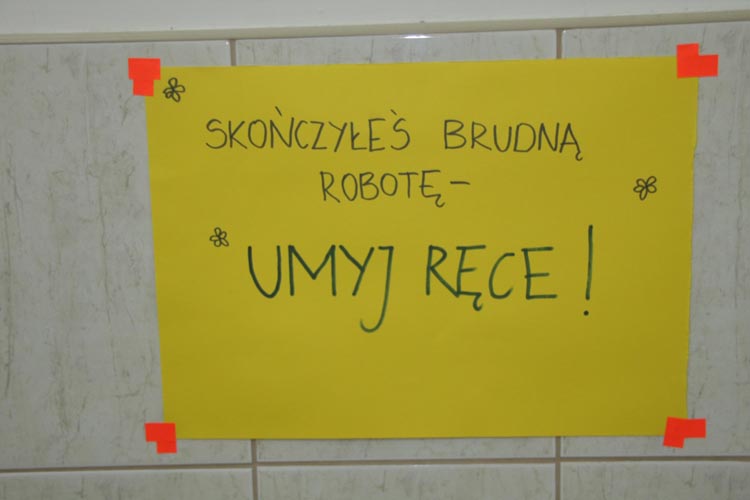 SKOŃCZYŁEŚ BRUDNĄ
ROBOTĘ -
UMYJ RĘCE!